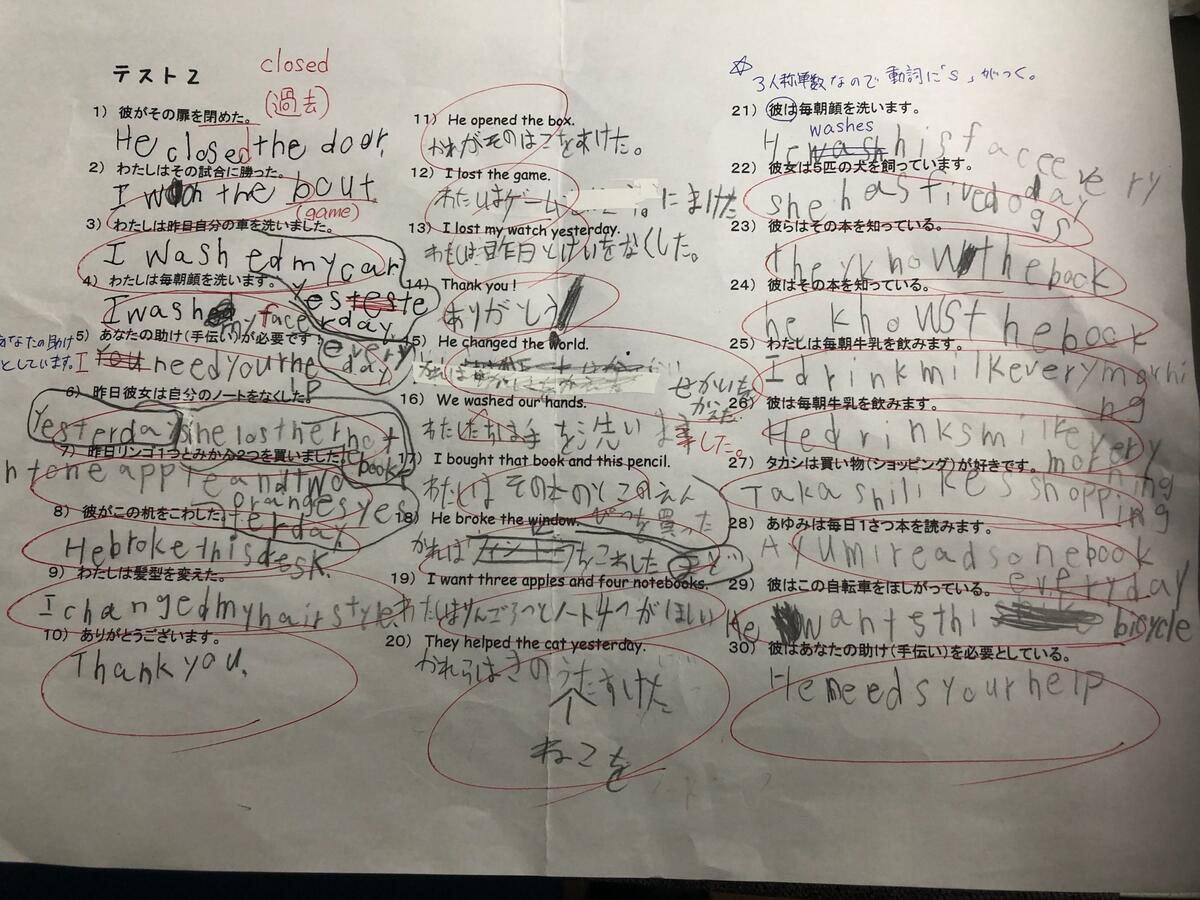 テスト2
closed
(過去)
1) 彼がその扉を閉めた。
He closed the door.
2) わたしはその試合に勝った。
I won the bout.
(game)
3) わたしは昨日自分の車を洗いました。
I washed my car
yesterday.
4) わたしは毎朝顔を洗います。
I wash my face
every day
5) あなたの助け(手伝い)が必要です
あなたの助け
としています。
I need your help
6) 昨日彼女は自分のノートをなくした。
Yesterday she lost her notebook
7) 昨日リンゴ1つとみかん2つを買いました
one apple and two
oranges yesterday
8) 彼がこの机をこわした。
He broke this desk.
9) わたしは髪型を変えた。
I changed my hair style.
10) ありがとうございます。
Thank you.
11) He opened the box.
かれがそのはこをあけた。
12) I lost the game.
わたしはゲームにまけた
13) I lost my watch yesterday.
わたしは昨日とけいをなくした。
14) Thank you !
ありがとう!
15) He changed the world.
せかいを
かえた
16) We washed our hands.
手を洗いました。
17) I bought that book and this pencil.
わたしはその本とこのえん
ぴつを買った
18) He broke the window.
かれはまどをこわした
19) I want three apples and four notebooks.
わたしはりんご3つとノート4つがほしい
20) They helped the cat yesterday.
かれらはきのうたすけた
ねこを
☆ 3人称単数なので動詞に「s」がつく。
21) 彼は毎朝顔を洗います。
washes
He wash his face every
day
22) 彼女は5匹の犬を飼っています。
she has five dogs
23) 彼らはその本を知っている。
they know the book
24) 彼はその本を知っている。
he knows the book
25) わたしは毎朝牛乳を飲みます。
I drink milk every morning
26) 彼は毎朝牛乳を飲みます。
He drinks milk every
morning
27) タカシは買い物(ショッピング)が好きです。
Takashi likes shopping
28) あゆみは毎日1さつ本を読みます。
Ayumi reads one book
every day
29) 彼はこの自転車をほしがっている。
He wants thi bicycle
30) 彼はあなたの助け(手伝い)を必要としている。
He needs your help